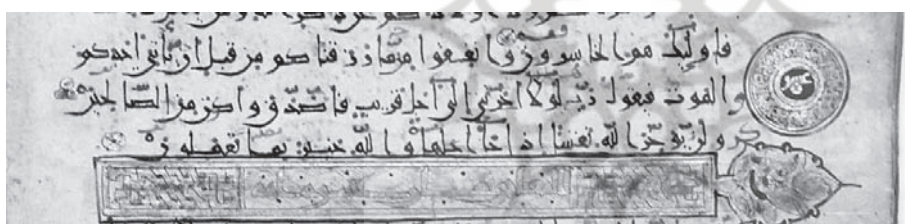 فاولئك هم الخاسرون وانفقوا مما رزقناكم من قبل ان ياتي احدكم
الموت فيقول رب لولا اخرتني الى اجل قريب فاصدق واكن من الصالحين
ولن يؤخر الله نفسا اذا جا اجلها والله خبير بما تعملون